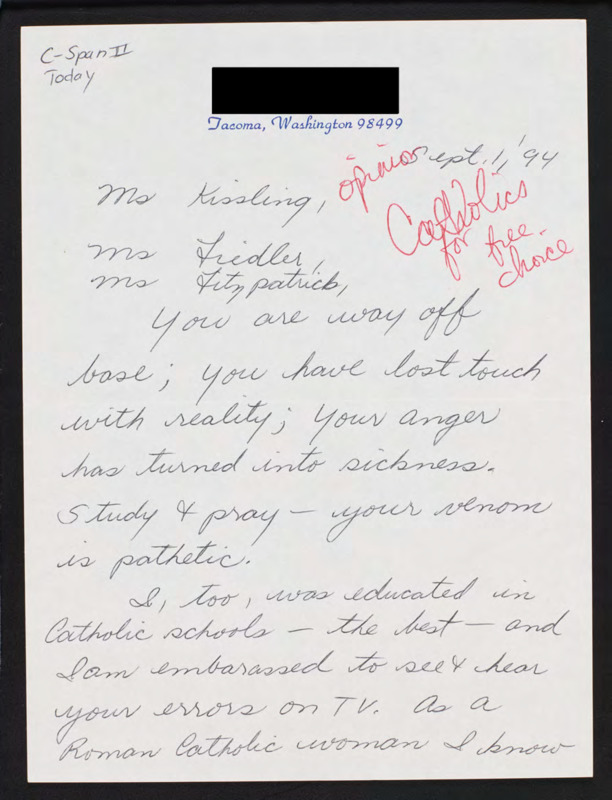 C-Span II
Today
Tacoma, Washington 98499
Sept. 1, '94
opinion
Catholics
for free
choice
Ms Kissling,
Ms Fiedler,
Ms Fitzpatrick,
You are way off
base; you have lost touch
with reality; your anger
has turned into sickness.
Study & pray — your venom
is pathetic.
I, too, was educated in
Catholic schools — the best — and
I am embarassed to see & hear
your errors on TV. As a
Roman Catholic woman I know